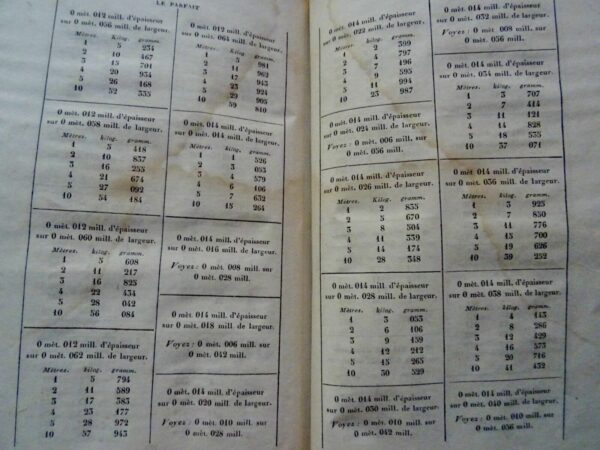 LE PARFAIT
0 mèt. 012 mill. d'épaisseur
sur 0 mèt. 056 mill. de largeur.
Mètres. Kilog. gramm.
1 5 234
2 10 467
3 15 701
4 20 934
5 26 168
10 52 335
0 mèt. 012 mill. d'épaisseur
sur 0 mèt. 058 mill. de largeur.
Mètres. Kilog. gramm.
1 5 418
2 10 837
3 16 255
4 21 674
5 27 092
10 54 184
0 mèt. 012 mill. d'épaisseur
sur 0 mèt. 060 mill. de largeur.
Mètres. Kilog. gramm.
1 5 608
2 11 217
3 16 825
4 22 434
5 28 042
10 56 084
0 mèt. 012 mill. d'épaisseur
sur 0 mèt. 062 mill. de largeur.
Mètres. Kilog. gramm.
1 5 794
2 11 589
3 17 383
4 23 177
5 28 972
10 57 943
0 mèt. 012 mill. d'épaisseur
sur 0 mèt. 064 mill. de largeur.
Mètres. Kilog. gramm.
1 5 981
2 11 962
3 17 943
4 23 924
5 29 905
10 59 810
0 mèt. 014 mill. d'épaisseur
sur 0 mèt. 014 mill. de largeur.
Mètres. Kilog. gramm.
1 1 526
2 3 053
3 4 579
4 6 106
5 7 632
10 15 264
0 mèt. 014 mill. d'épaisseur
sur 0 mèt. 016 mill. de largeur.
Voyez : 0 mèt. 008 mill. sur
0 mèt. 028 mill.
0 mèt. 014 mill. d'épaisseur
sur 0 mèt. 018 mill. de largeur.
Voyez : 0 mèt. 006 mill. sur
0 mèt. 042 mill.
0 mèt. 014 mill. d'épaisseur
sur 0 mèt. 020 mill. de largeur.
Voyez : 0 mèt. 010 mill. sur
0 mèt. 028 mill.
0 mèt. 014 mill. d'épaisseur
sur 0 mèt. 022 mill. de largeur.
Mètres. Kilog. gramm.
1 2 399
2 4 797
3 7 196
4 9 595
5 11 994
10 23 987
0 mèt. 014 mill. d'épaisseur
sur 0 mèt. 024 mill. de largeur.
Voyez : 0 mèt. 006 mill. sur
0 mèt. 056 mill.
0 mèt. 014 mill. d'épaisseur
sur 0 mèt. 026 mill. de largeur.
Mètres. Kilog. gramm.
1 2 835
2 5 670
3 8 504
4 11 339
5 14 174
10 28 348
0 mèt. 014 mill. d'épaisseur
sur 0 mèt. 028 mill. de largeur.
Mètres. Kilog. gramm.
1 3 053
2 6 106
3 9 159
4 12 212
5 15 265
10 30 529
0 mèt. 014 mill. d'épaisseur
sur 0 mèt. 030 mill. de largeur.
Voyez : 0 mèt. 010 mill. sur
0 mèt. 042 mill.
0 mèt. 014 mill. d'épaisseur
sur 0 mèt. 032 mill. de largeur.
Voyez : 0 mèt. 008 mill. sur
0 mèt. 056 mill.
0 mèt. 014 mill. d'épaisseur
sur 0 mèt. 034 mill. de largeur.
Mètres. Kilog. gramm.
1 3 707
2 7 414
3 11 121
4 14 828
5 18 535
10 37 071
0 mèt. 014 mill. d'épaisseur
sur 0 mèt. 036 mill. de largeur.
Mètres. Kilog. gramm.
1 3 925
2 7 850
3 11 776
4 15 700
5 19 626
10 39 252
0 mèt. 014 mill. d'épaisseur
sur 0 mèt. 038 mill. de largeur.
Mètres. Kilog. gramm.
1 4 143
2 8 286
3 12 429
4 16 573
5 20 716
10 41 432
0 mèt. 014 mill. d'épaisseur
sur 0 mèt. 040 mill. de largeur.
Voyez : 0 mèt. 010 mill. sur
0 mèt. 056 mill.